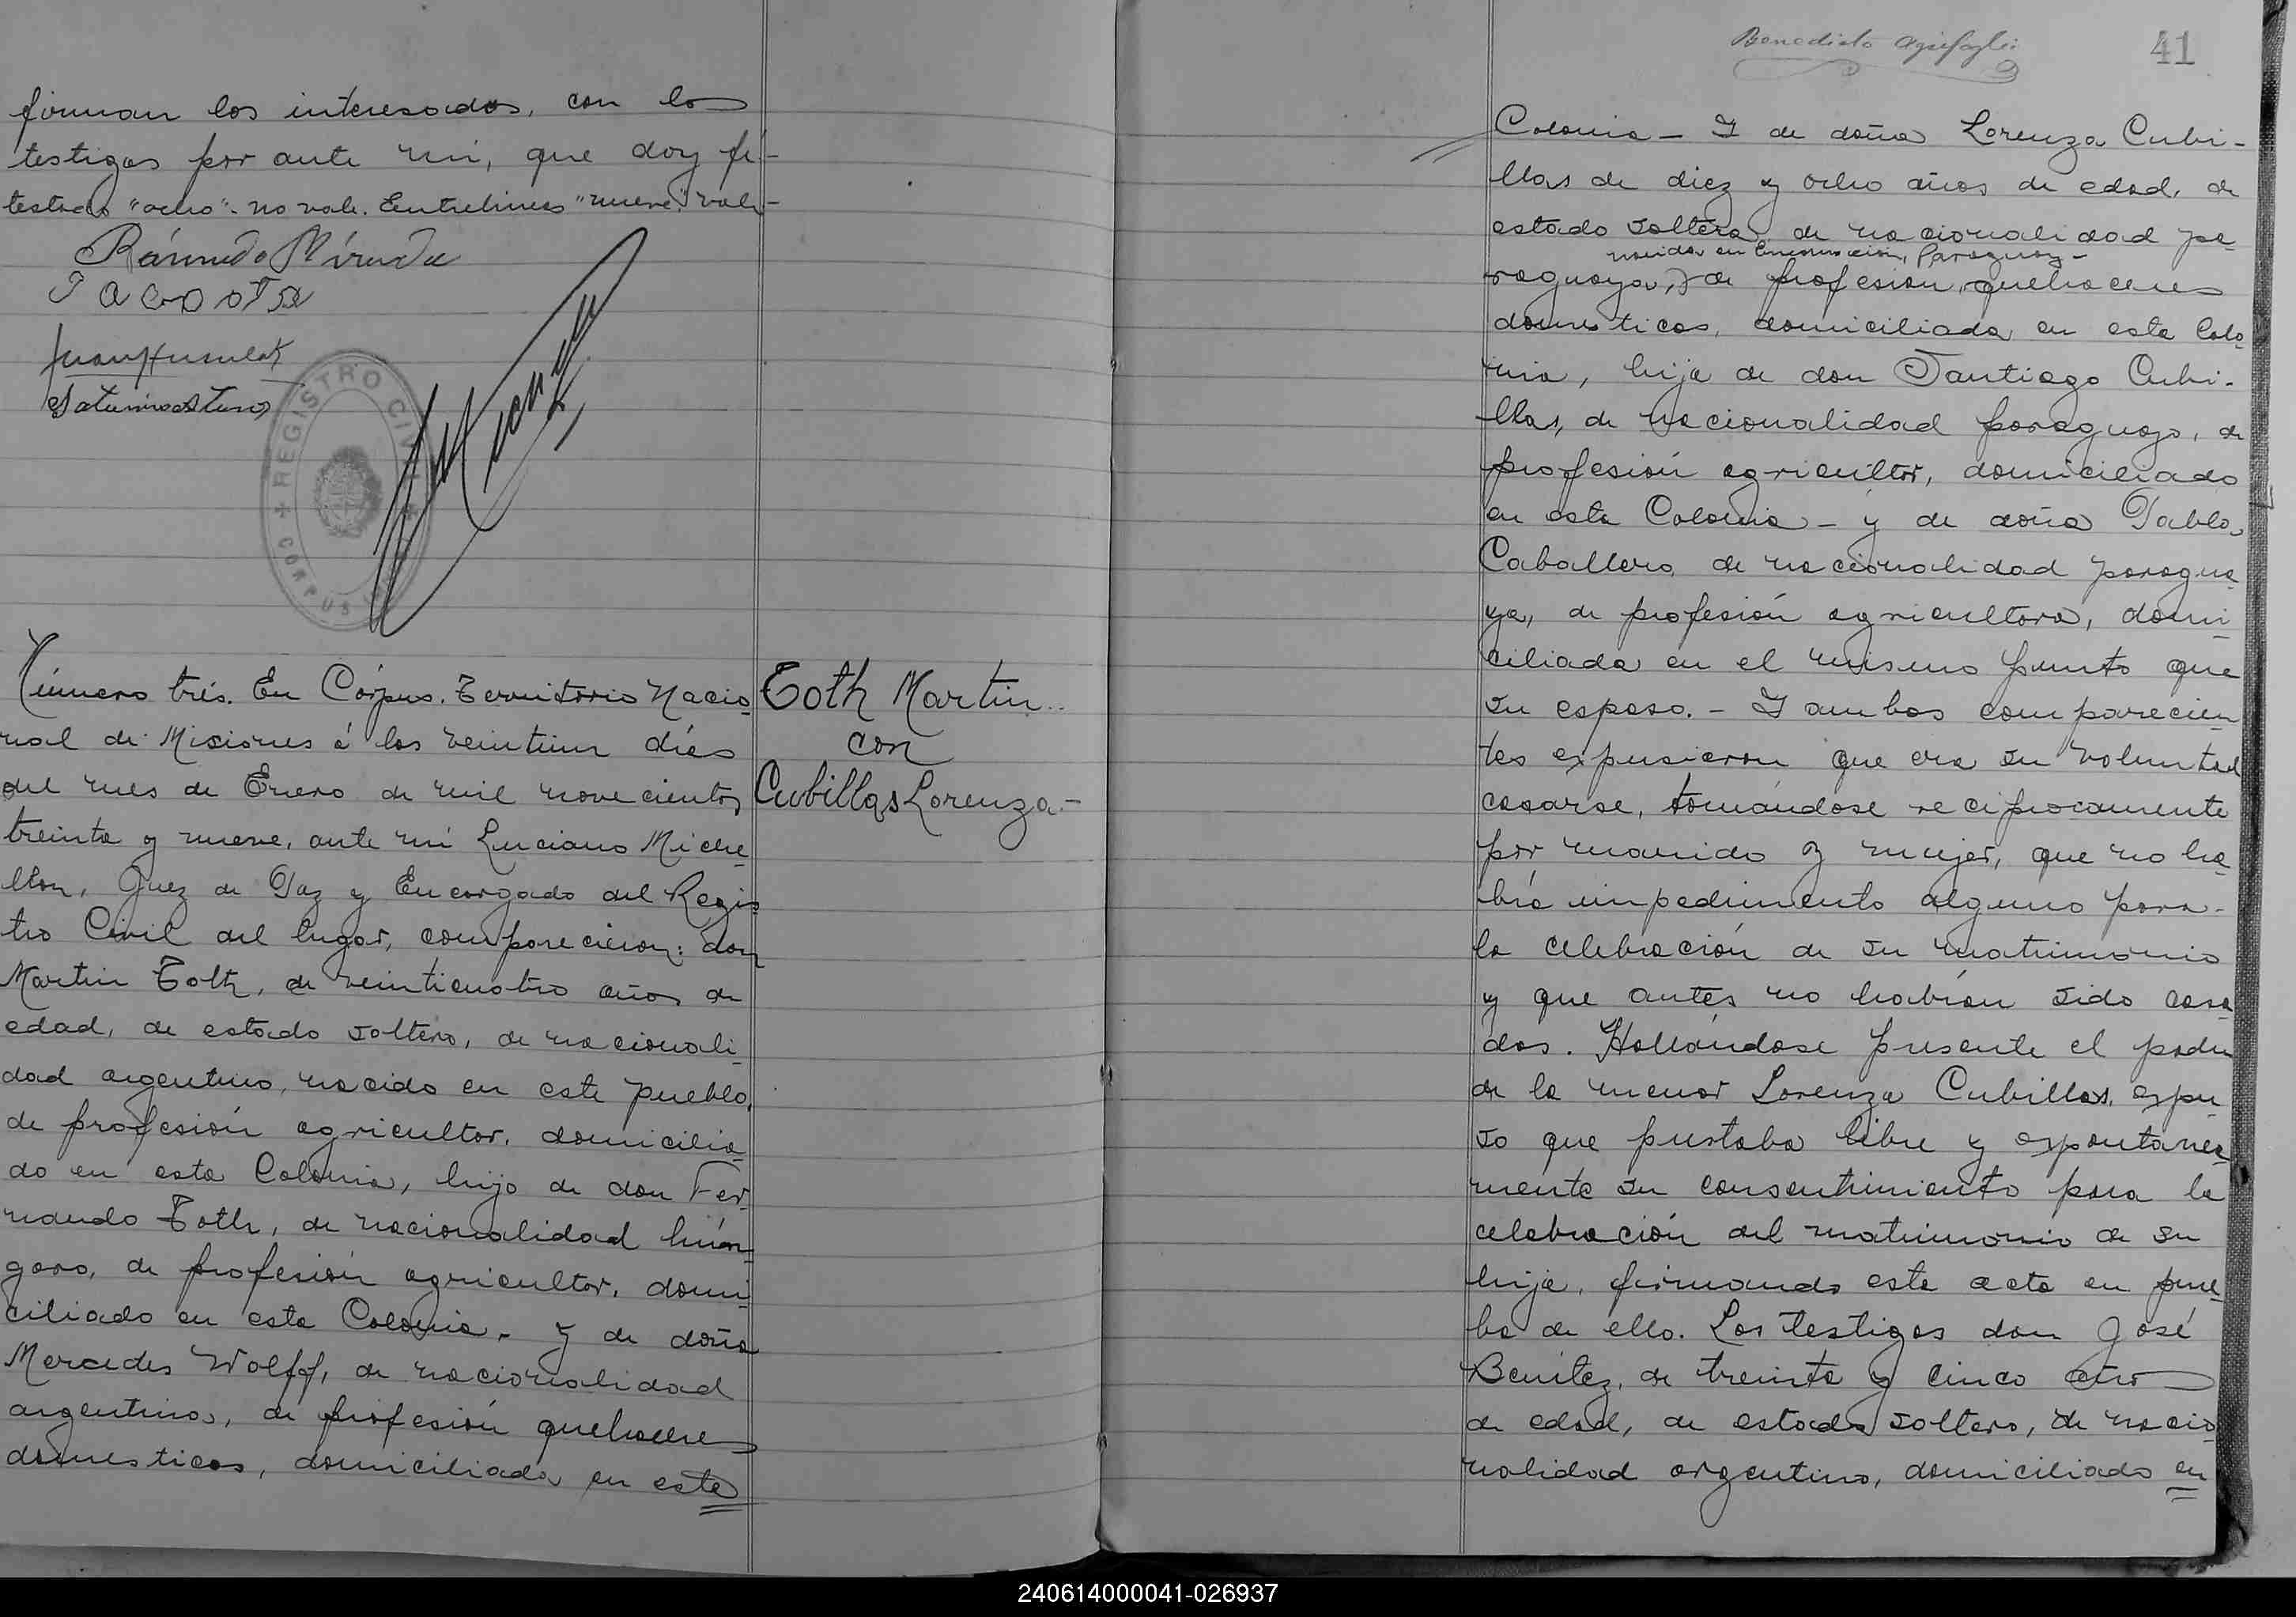 firman los interesados, con los
testigos por ante mí, que doy fé-
testado "ocho" no vale. Entrelineas "nueve" vale-
P Acosta
REGISTRO CIVIL
CORPUS
Número trés. En Córpus. Territorio Nacio
nal de Misiones á los veintiun dias
del mes de Enero de mil novecientos
treinta y nueve, ante mí Luciano Miche
llon, Juez de Paz y Encargado del Regis
tro Civil del lugar, comparecieron: don
Martin Toth, de veinticuatro años de
edad, de estado soltero, de nacionali
dad argentino, nacido en este pueblo,
de profesión agricultor, domicilia
do en esta Colonia, hijo de don Fer
nando Toth, de nacionalidad hún
garo, de profesión agricultor, domi
ciliado en esta Colonia. y de doña
Mercedes Wolff, de nacionalidad
argentina, de profesión quehaceres
domesticos, domiciliada en esta
Toth Martin
con
Cubillas Lorenza.-
41
Colonia - Y de doña Lorenza Cubi-
llas de diez y ocho años de edad, de
estado soltera, de nacionalidad pa
nacida en Encarnación, Paraguay-
raguaya, de profesión, quehaceres
domesticos, domiciliada en esta Colo
nia, hija de don Santiago Cubi-
llas, de nacionalidad paraguayo, de
profesión agricultor, domiciliado
en esta Colonia - y de doña Pabla
Caballero, de nacionalidad paragua
ya, de profesión agricultora, domi
ciliada en el mismo punto que
su esposo. - Y ambos comparecien
tes expusieron que era su voluntad
casarse, tomándose reciprocamente
por marido y mujer, que no ha
bía impedimento alguno para-
la celebración de su matrimonio
y que antes no habían sido casa
dos. Hallándose presente el padre
de la menor Lorenza Cubillas, expu
so que prestaba libre y espontanea
mente su consentimiento para la
celebración del matrimonio de su
hija, firmando esta acta en prue
ba de ello. Los testigos don José
Benítez, de treinta y cinco años
de edad, de estado soltero, de nacio
nalidad argentino, domiciliado en
240614000041-026937